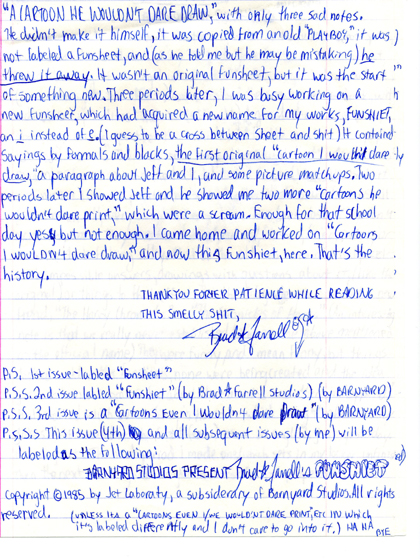 "A CARTOON HE WOULDN'T DARE DRAW," with only three sad notes.
He didn't make it himself, it was copied from an old "PLAYBOY," it was
not labeled a Funsheet, and (as he told me but he may be mistaking) he
threw it away. It wasn't an original Funsheet, but it was the start
of something new. Three periods later, I was busy working on a
new Funsheet, which had acquired a new name for my works, FUNSHIET,
an i instead of e. (I guess to be a cross between sheet and shit) It containd
sayings by Formals and blacks, the first original "cartoon I wouldn't dare
draw," a paragraph about Jeff and I, and some picture matchups. Two
periods later I showed Jeff and he showed me two more "Cartoons he
wouldn't dare print," which were a scream. Enough for that school
day yes, but not enough. I came home and worked on "Cartoons
I wouldn't dare draw," and now this Funshiet, here. That's the
history.
THANK YOU FOR PATIENCE WHILE READING
THIS SMELLY SHIT,
Brad Farrell
P.S. 1st issue - labled "Funsheet"
P.S.S. 2nd issue labled "Funshiet" (by Brad Farrell Studios) (by BARNYARD)
P.S.S. 3rd issue is a "Cartoons Even I Wouldn't dare" (by BARNYARD)
P.S.S.S This issue (4th) and all subsequent issues (by me) will be
labeled as the following:
BARNYARD STUDIOS PRESENT Brad Farrell's FUNSHIET
Copyright © 1985 by Jet Laboraty, a subsiderary of Barnyard Studios. All rights
reserved. (UNLESS ITS A "CARTOONS EVEN I/WE WOULDN'T DARE PRINT," ETC IN WHICH
it's labeled differently and I don't care to go into it.) HA HA
BYE